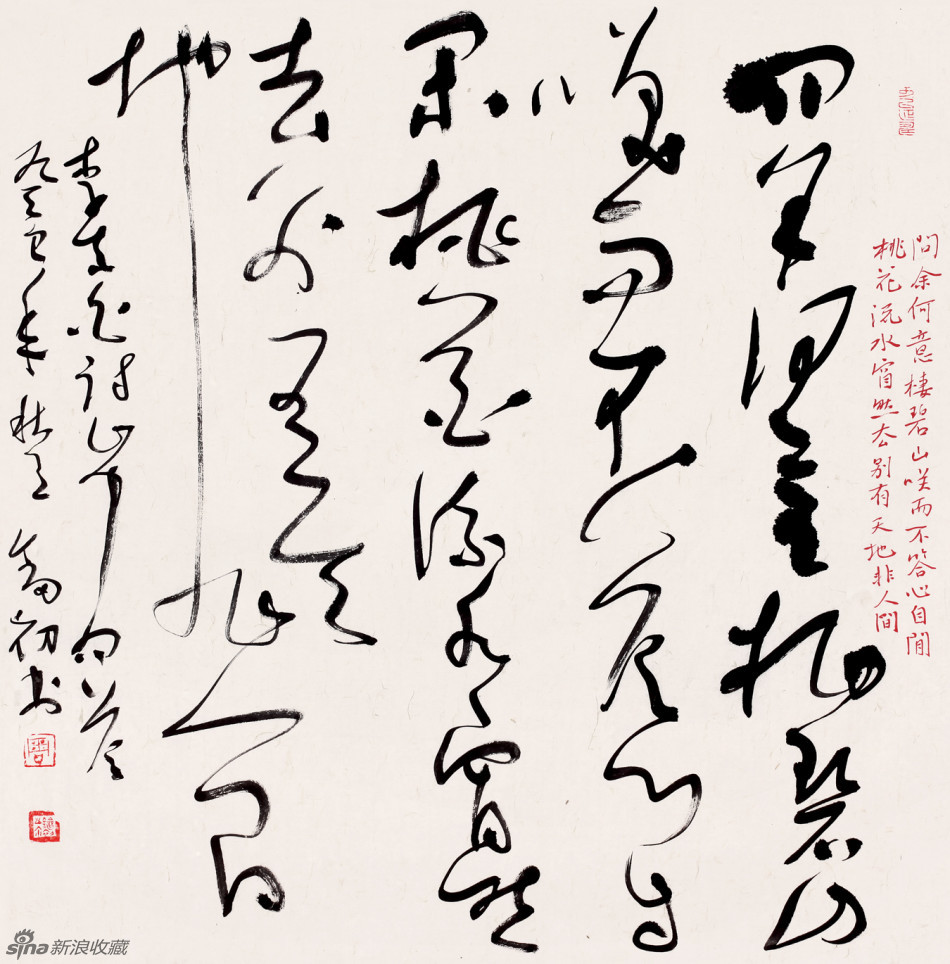 問余何意棲碧山咲而不答心自閒
桃花流水窅然去別有天地非人間
问余何意栖碧山
笑而不答心自
闲桃花流水窅然
去别有天
地非人间
李太白诗山中问答
癸巳年秋 初书
sina新浪收藏